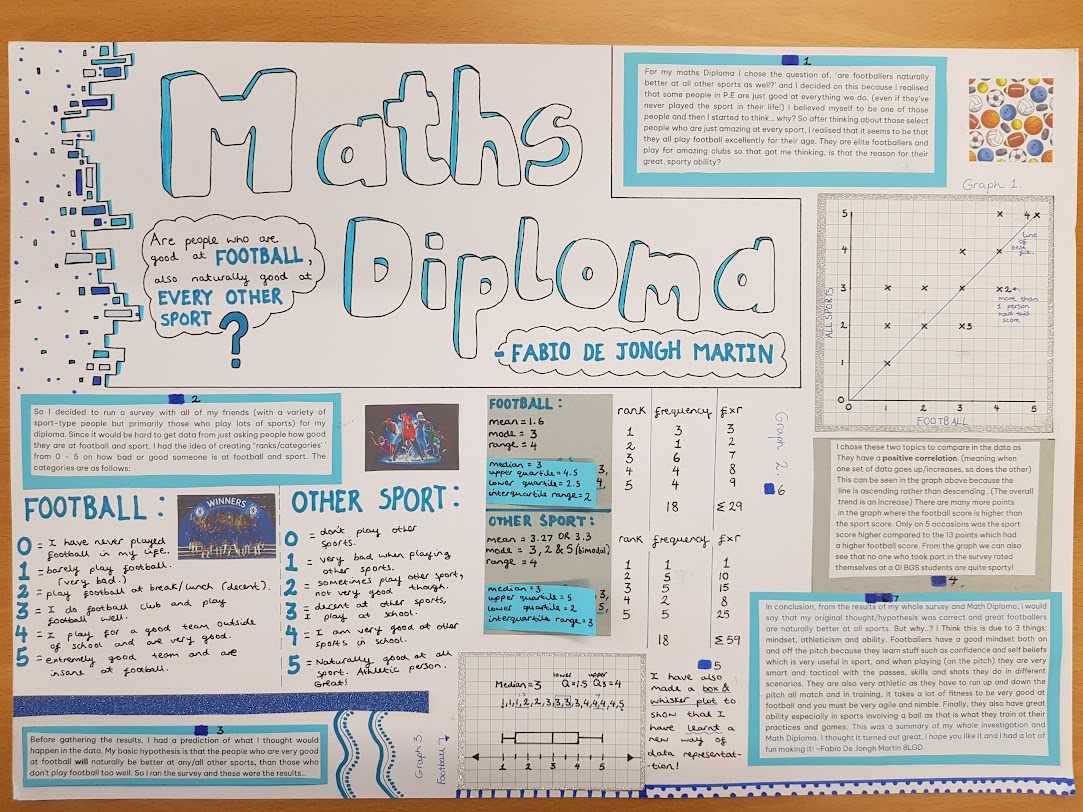 Maths
Diploma
- FABIO DE JONGH MARTIN
Are people who are
good at FOOTBALL,
also naturally good at
EVERY OTHER
SPORT
?
1
For my maths Diploma I chose the question of, 'are footballers naturally
better at all other sports as well?' and I decided on this because I realised
that some people in P.E are just good at everything we do, (even if they've
never played the sport in their life!) I believed myself to be one of those
people and then I started to think... why? So after thinking about those select
people who are just amazing at every sport, I realised that it seems to be that
they all play football excellently for their age. They are elite footballers and
play for amazing clubs so that got me thinking, is that the reason for their
great, sporty ability?
2
So I decided to run a survey with all of my friends (with a variety of
sport-type people but primarily those who play lots of sports) for my
diploma. Since it would be hard to get data from just asking people how good
they are at football and sport, I had the idea of creating "ranks/categories"
from 0 - 5 on how bad or good someone is at football and sport. The
categories are as follows:
FOOTBALL:
WINNERS
0 = I have never played
football in my life.
1 = barely play football.
(very bad.)
2 = play football at break/lunch (decent).
3 = I do football club and play
football well.
4 = I play for a good team outside
of school and are very good.
5 = extremely good team and are
insane at football.
OTHER SPORT:
0 = don't play other
sports.
1 = very bad when playing
other sports.
2 = sometimes play other sport,
not very good though.
3 = decent at other sports,
I play at school.
4 = I am very good at other
sports in school.
5 = Naturally good at all
sport. Athletic person.
Great!
3
Before gathering the results, I had a prediction of what I thought would
happen in the data. My basic hypothesis is that the people who are very good
at football will naturally be better at any/all other sports, than those who
don't play football too well. So I ran the survey and these were the results...
FOOTBALL:
mean = 1.6
mode = 3
range = 4
median = 3
upper quartile = 4.5
lower quartile = 2.5
interquartile range = 2
OTHER SPORT:
mean = 3.27 OR 3.3
mode = 3, 2 & 5 (bimodal)
range = 4
median = 3
upper quartile = 5
lower quartile = 2
interquartile range = 3
rank frequency fxr
1 3 3
2 1 2
3 6 7
4 4 8
5 4 9
18 Σ 29
rank frequency fxr
1 1 1
2 5 10
3 5 15
4 2 8
5 5 25
18 Σ 59
Graph 2.
6
Graph 1.
ALL SPORTS
5
4
3
2
1
0
0 1 2 3 4 5
FOOTBALL
4
line
of
best
fit.
2
more than
1 person
had this
score
3
I chose these two topics to compare in the data as
They have a positive correlation. (meaning when
one set of data goes up/increases, so does the other)
This can be seen in the graph above because the
line is ascending rather than descending. (The overall
trend is an increase) There are many more points
in the graph where the football score is higher than
the sport score. Only on 5 occasions was the sport
score higher compared to the 13 points which had
a higher football score. From the graph we can also
see that no one who took part in the survey rated
themselves at a 0! BGS students are quite sporty!
4
Graph 3.
Football
Median = 3
lower
Q = 1.5
upper
Q3 = 4
1 2 3 4 5
5
I have also
made a box &
whisker plot to
show that I
have learnt a
new way of
data represent-
-tion!
7
In conclusion, from the results of my whole survey and Math Diploma, I would
say that my original thought/hypothesis was correct and great footballers
are naturally better at all sports. But why..? I Think this is due to 3 things:
mindset, athleticism and ability. Footballers have a good mindset both on
and off the pitch because they learn stuff such as confidence and self beliefs
which is very useful in sport, and when playing (on the pitch) they are very
smart and tactical with the passes, skills and shots they do in different
scenarios. They are also very athletic as they have to run up and down the
pitch all match and in training, it takes a lot of fitness to be very good at
football and you must be very agile and nimble. Finally, they also have great
ability especially in sports involving a ball as that is what they train at their
practices and games. This was a summary of my whole investigation and
Math Diploma. I thought it turned out great, I hope you like it and I had a lot of
fun making it! -Fabio De Jongh Martin 8LGD